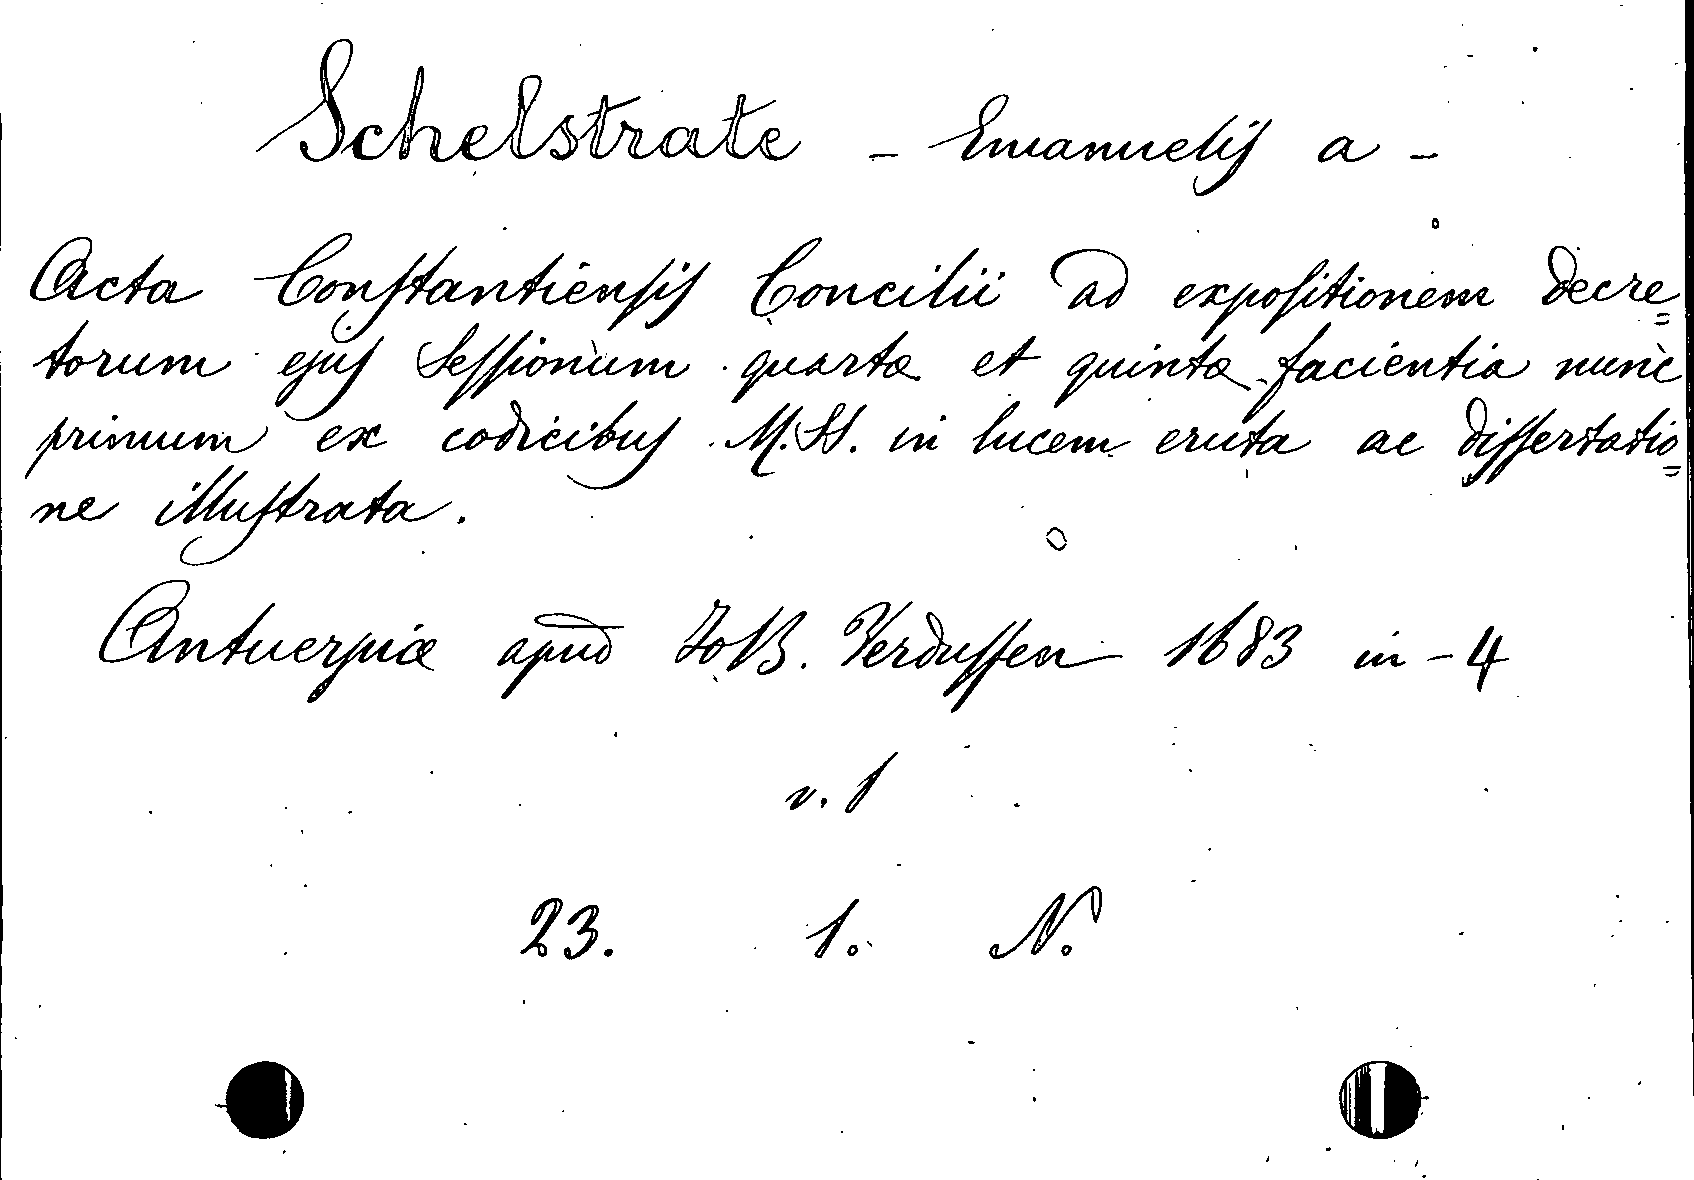 Schelstrate - Emanuelis a -
Acta Constantiensis Concilii ad expositionem decre=
torum ejus Sessionum quartæ et quintæ facientia nunc
primum ex codicibus M.SS. in lucem eruta ac dissertatio=
ne illustrata.
Antuerpiæ apud Jo B. Verdussen 1683 in-4
v. 1
23. 1. N.